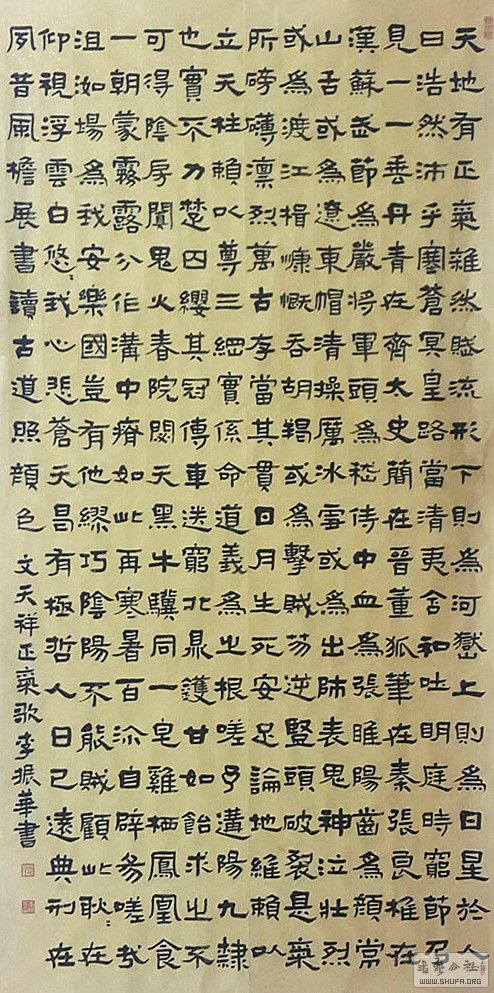 天地有正氣雜然賦流形下則為河嶽上則為日星於人
曰浩然沛乎塞蒼冥皇路當清夷含和吐明庭時窮節乃
見一一垂丹青在齊太史簡在晉董狐筆在秦張良椎在
漢蘇武節為嚴將軍頭為嵇侍中血為張睢陽齒為顏常
山舌或為遼東帽清操厲冰雪或為出師表鬼神泣壯烈
或為渡江楫慷慨吞胡羯或為擊賊笏逆豎頭破裂是氣
所磅礴凜烈萬古存當其貫日月生死安足論地維賴以
立天柱賴以尊三綱實係命道義為之根嗟予遘陽九隸
也實不力楚囚纓其冠傳車送窮北鼎鑊甘如飴求之不
可得陰房闃鬼火春院閟天黑牛驥同一皂雞栖鳳凰食
一朝蒙霧露分作溝中瘠如此再寒暑百沴自辟易嗟哉
沮洳場為我安樂國豈有他繆巧陰陽不能賊顧此耿〻在
仰視浮雲白悠〻我心悲蒼天曷有極哲人日已遠典刑在
夙昔風檐展書讀古道照顏色 文天祥正氣歌李振華書
書藝公社
WWW.SHUFA.ORG